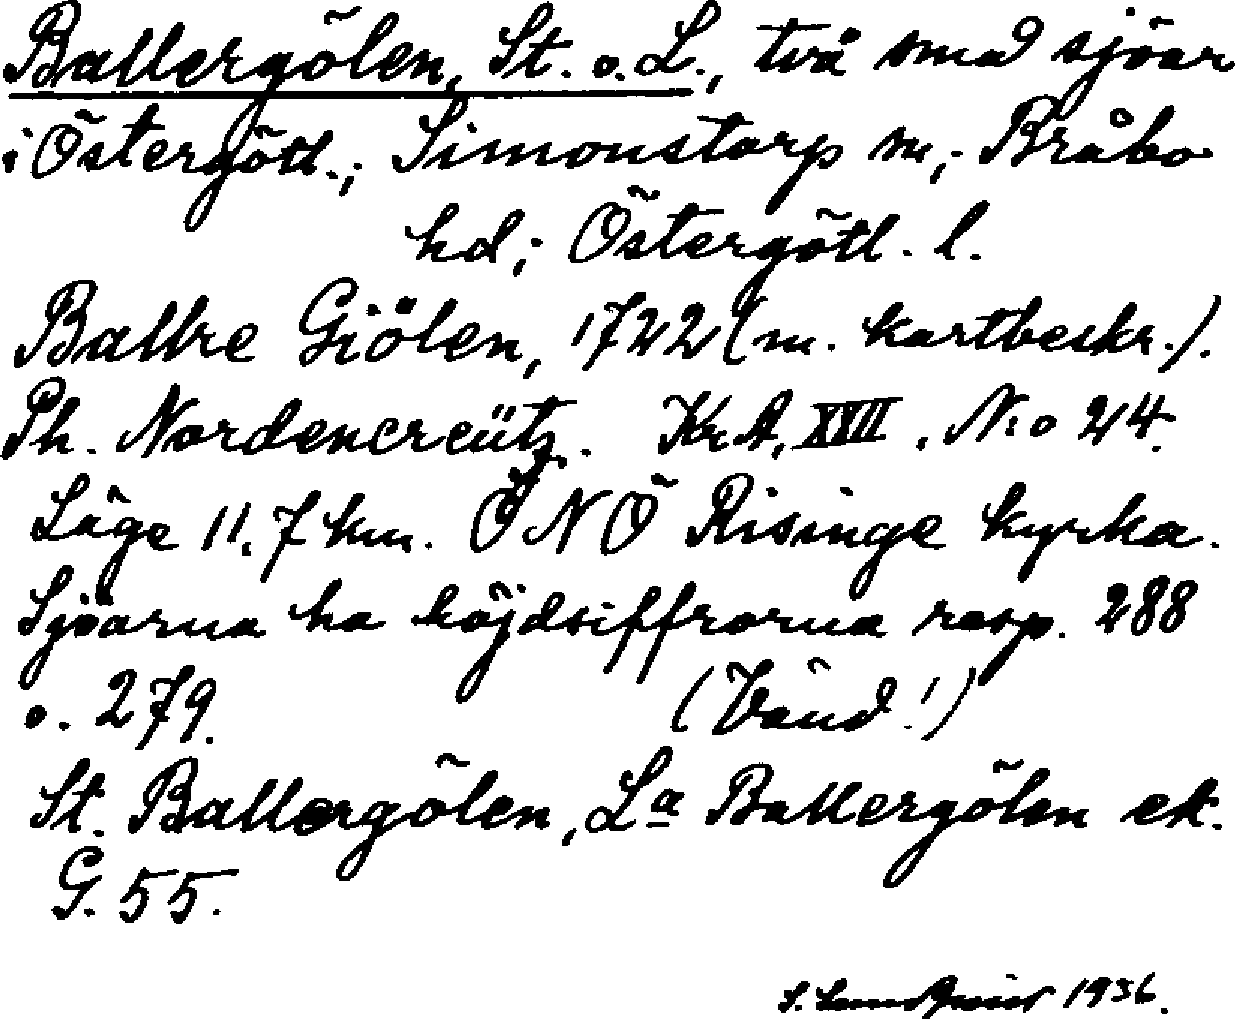 Ballergölen, St. o. L., två små sjöar
i Östergötl.; Simonstorp sn; Bråbo
hd; Östergötl. l.
Ballre Giölen, 1722 (m. kartbeskr.).
Ph. Nordencreütz. Kr.A. XVII. N:o 24.
Läge 11.7 km. ÖNÖ Risinge kyrka.
Sjöarna ha höjdsiffrorna resp. 288
o. 279. (Vänd!)
St. Ballergölen, La Ballergölen ek.
G. 55.
1936.